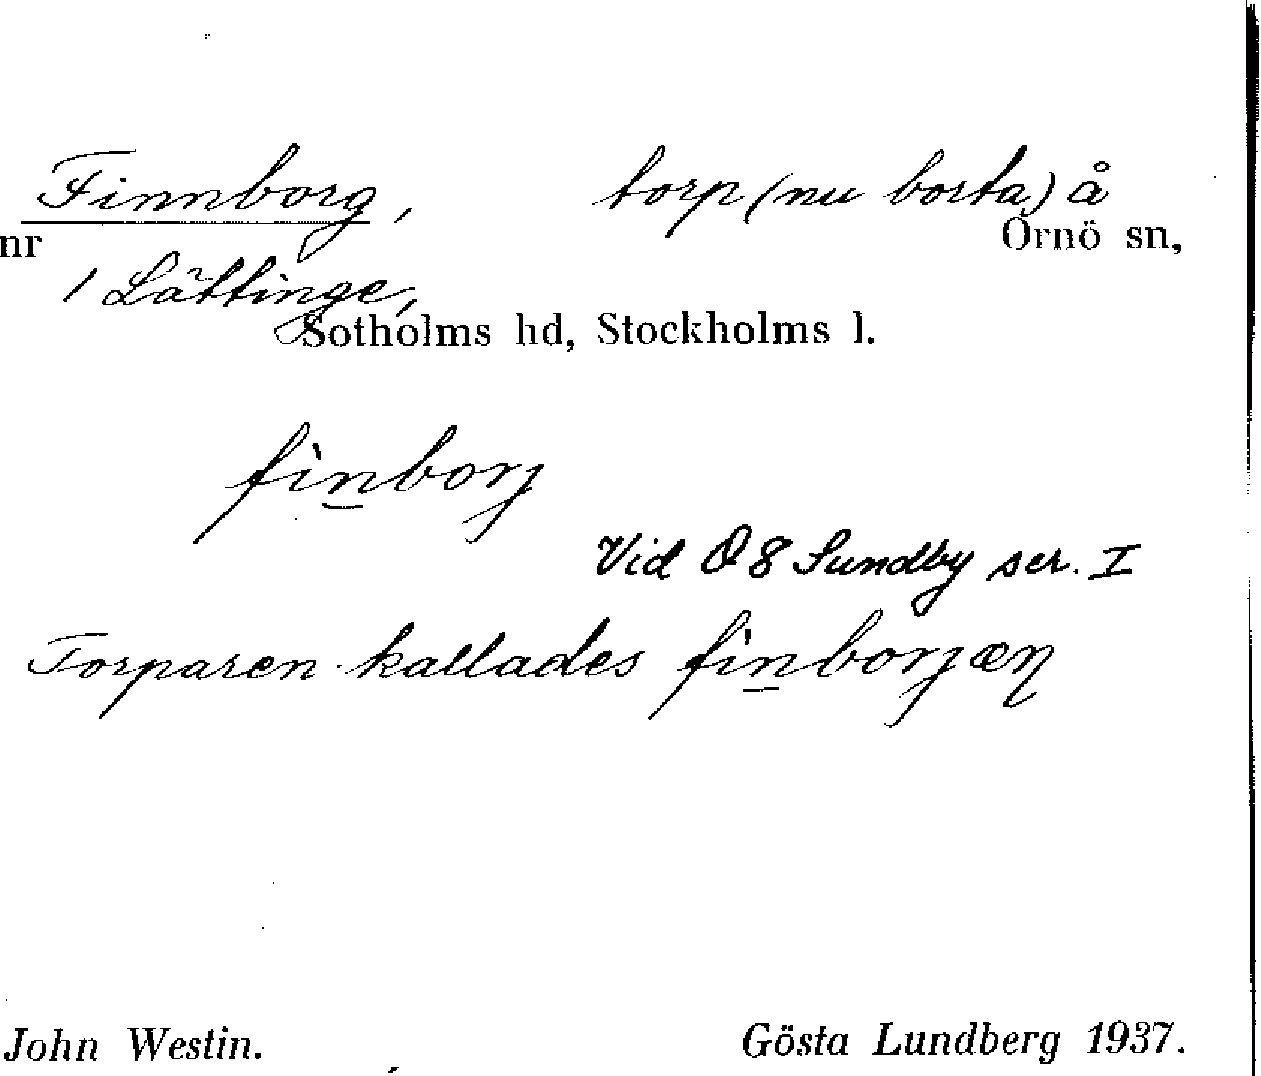 Finnborg, torp (nu borta) å
nr Ornö sn,
1 Lättinge,
Sotholms hd, Stockholms l.
fìn̲borj
Vid Ö 8 Sundby ser. I
Torparen kallades fìn̲borjæn
John Westin. Gösta Lundberg 1937.